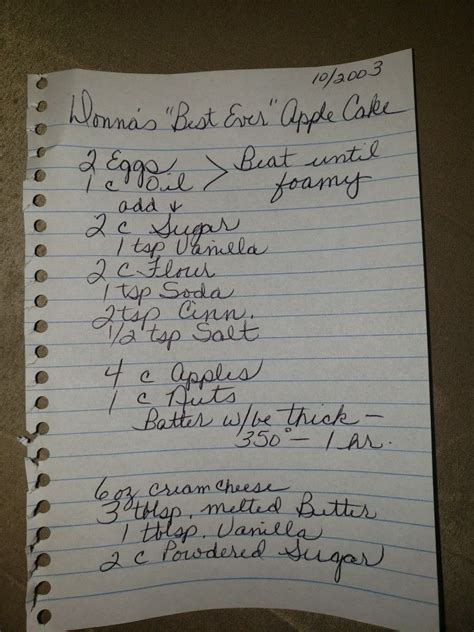 10/2003
Donna's "Best Ever" Apple Cake
2 Eggs > Beat until
1 c Oil foamy
add ↓
2 c Sugar
1 tsp Vanilla
2 c Flour
1 tsp Soda
2 tsp Cinn.
1/2 tsp Salt
4 c Apples
1 c Nuts
Batter w/be thick –
350° – 1 hr.
6 oz creamcheese
3 tblsp. melted Butter
1 tblsp. Vanilla
2 c Powdered Sugar